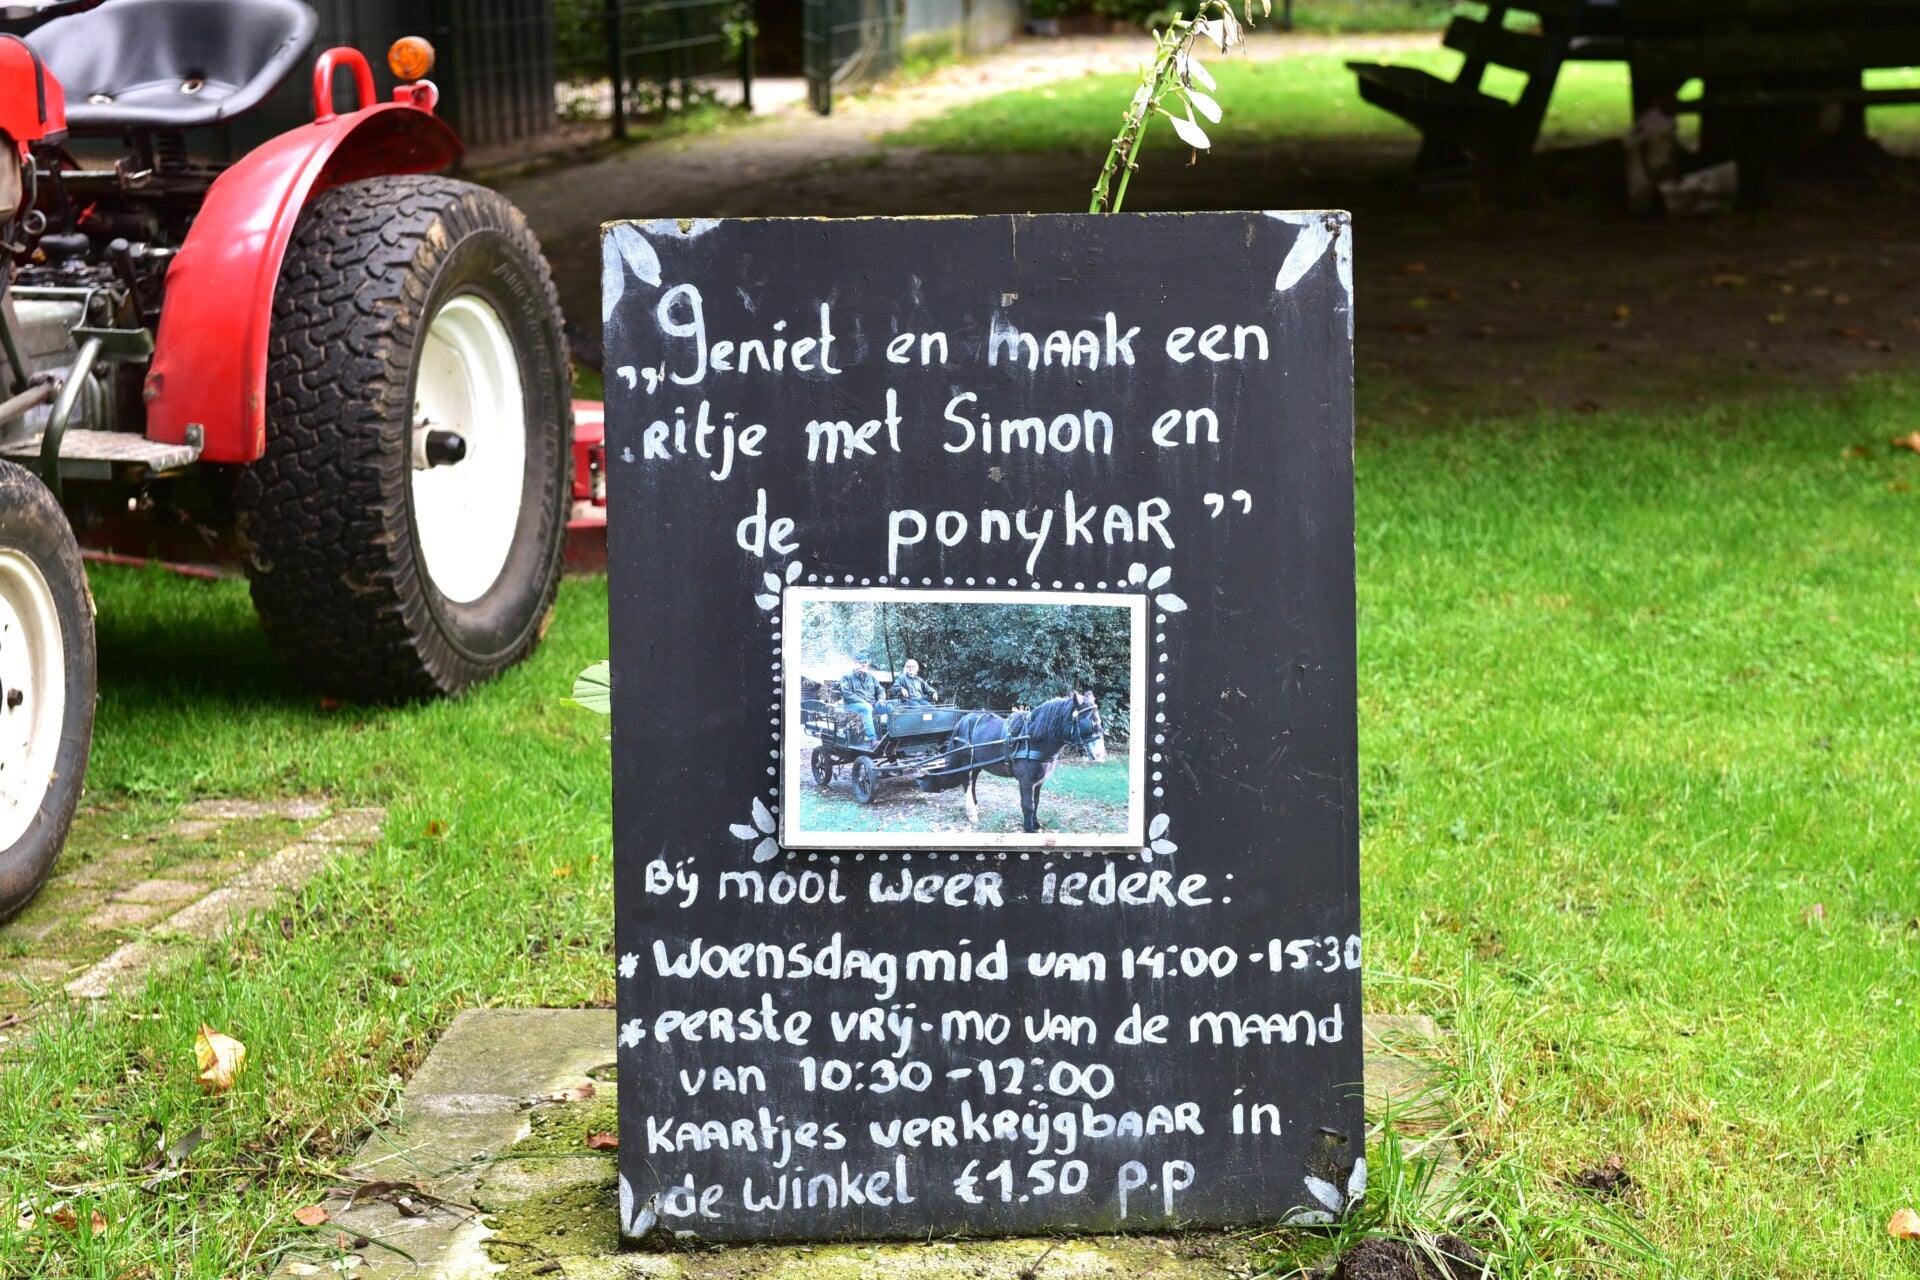 „Geniet en maak een
ritje met Simon en
de ponykar”
Bij mooi weer iedere:
* Woensdagmid van 14:00 - 15:30
* eerste vrij-mo van de maand
van 10:30 - 12:00
Kaartjes verkrijgbaar in
de winkel €1.50 p.p